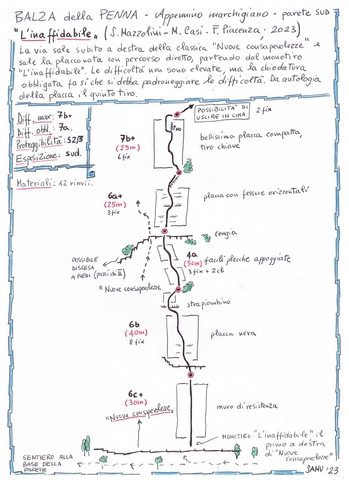 BALZA della PENNA - Appennino marchigiano - parete SUD
"L'inaffidabile" (S. Mazzolini - M. Casi - F. Piacenza · 2023)
La via sale subito a destra della classica "Nuove consapevolezze" e
sale la placconata con percorso diretto, partendo dal monotiro
"L'inaffidabile". Le difficoltà non sono elevate, ma la chiodatura
obbligata fa sì che si debba padroneggiare le difficoltà. Da antologia
della placca il quinto tiro.
Diff. max: 7b+
Diff. obbl: 7a.
Proteggibilità: S2/II
Esposizione: sud.
Materiali: 12 rinvii.
POSSIBILITÀ DI
USCIRE IN CIMA
2 fix
7b+
(25m)
6 fix
bellissima placca compatta,
tiro chiave
6a+
(25m)
3 fix
placca con fessure orizzontali
cengia
POSSIBILE
DISCESA
A PIEDI (passi di II)
"Nuove consapevolezze"
4a
(50m)
3 fix + 2 cl
facili placche appoggiate
strapiombino
6b
(40m)
8 fix
placca nera
6c+
(30m)
"Nuove consapevolezze"
muro di resistenza
MONOTIRO "L'inaffidabile", il
primo a destra
di "Nuove
consapevolezze"
SENTIERO ALLA
BASE DELLA
PARETE
SAMU '23